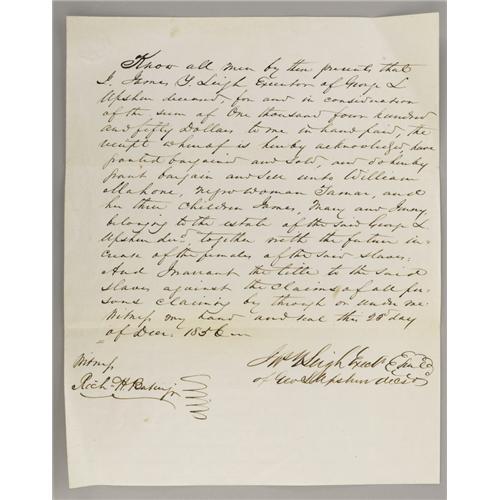 Know all men by these presents that
I, James Y. Leigh Executor of George L
Upshur deceased, for and in consideration
of the sum of One thousand four hundred
and fifty Dollars to me in hand paid, the
receipt whereof is hereby acknowledged, have
granted bargained and sold, and do hereby
grant, bargain and sell unto William
Mahone, negro woman Tamar, and
her three children James, Mary and
belonging to the estate of the said George L.
Upshur decd, together with the future in-
crease of the females of the said slaves.
And I warrant the title to the said
slaves against the claims of all per-
sons claiming by through or under me
Witness my hand and seal this 28 day
of Decr. 1856
Witness
Rich. H. Baker jr
Leigh Exectr
of Geo L Upshur decd